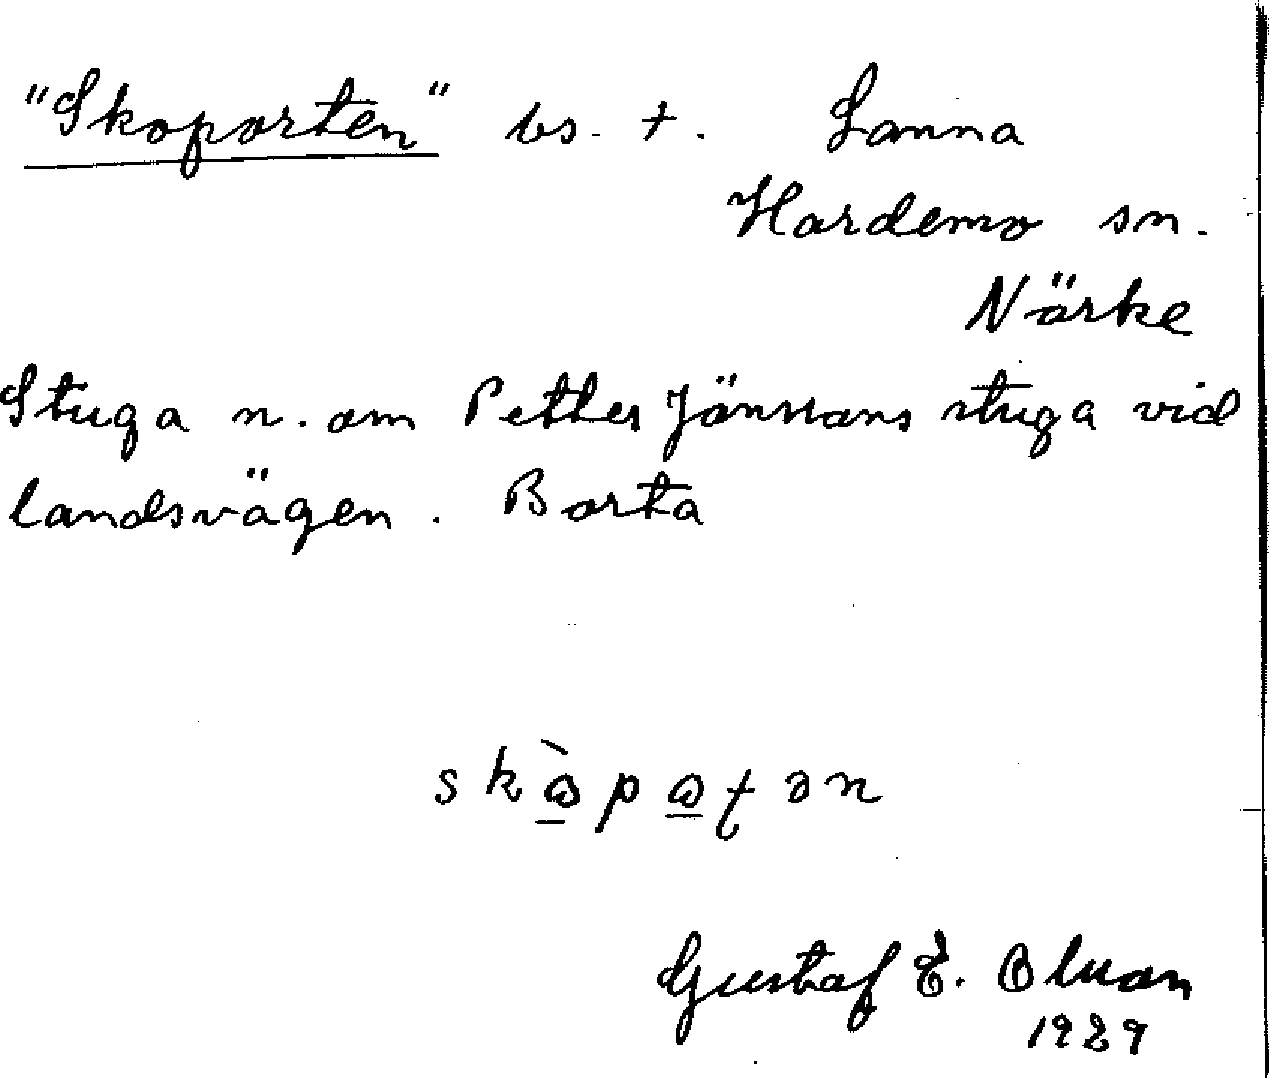 "Skoporten" bs. †. Lanna
Hardemo sn.
Närke
Stuga n. om Petter Jönssans stuga vid
landsvägen. Borta
Gustaf E. Olson
1929